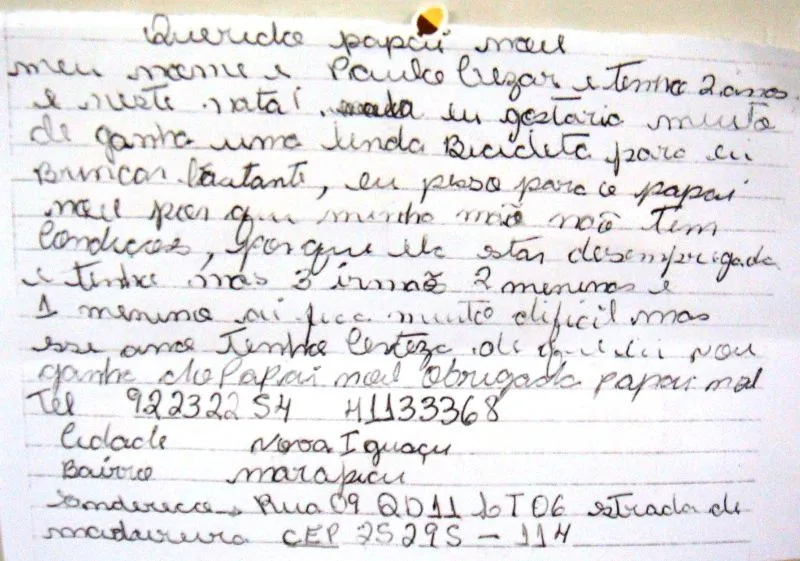 Querido papai noel
meu nome e Paulo Cezar e tenho 2 anos
e neste natal eu gostaria muito
de ganha uma linda Bicicleta para eu
Brincar bastante, eu peso para o papai
noel por que minha mãe não tem
condicoes, porque ela estar desempregada
e tenho mas 3 irmão 2 meninas e
1 menino ai fica muito dificil mas
esse ano tenho certeza de que eu vou
ganha do Papai noel obrigada papai noel
Tel 92232254 41133368
Cidade Nova Iguaçu
Bairro marapicu
Endereco Rua 09 QD11 LT06 estrada de
madureira CEP 25295-114